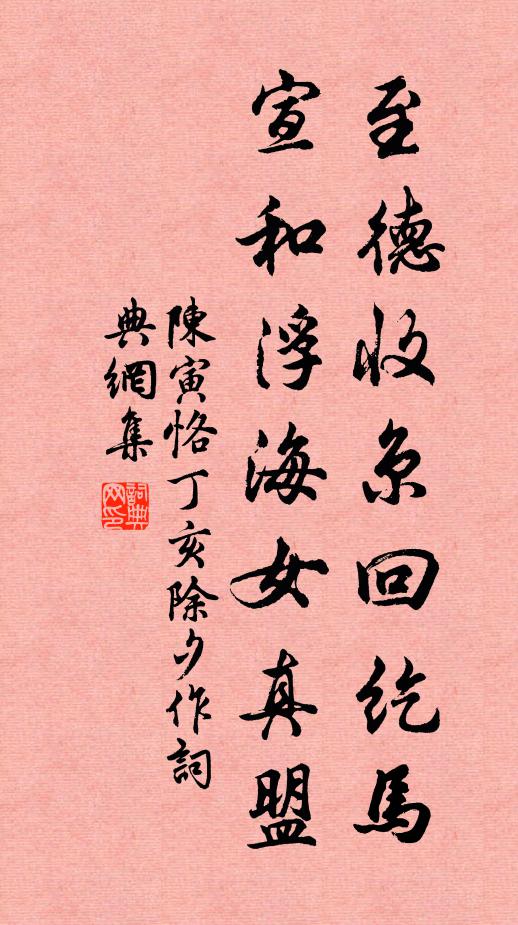 至德收京回紇馬
宣和浮海女真盟
陳寅恪丁亥除夕作詞
典網集
詞典
网印